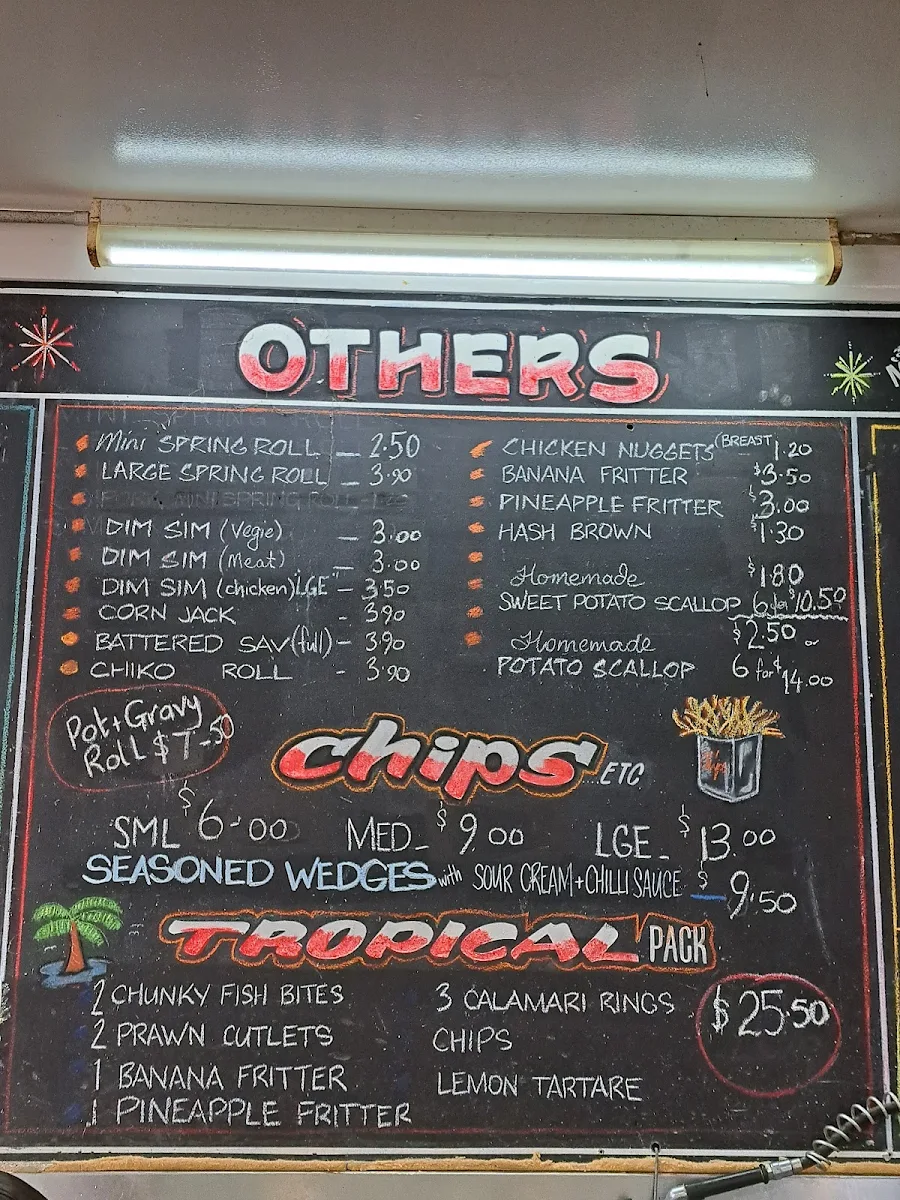 OTHERS
Mini SPRING ROLL _ 2.50
LARGE SPRING ROLL _ 3.90
DIM SIM (Vegie) _ 3.00
DIM SIM (Meat) - 3.00
DIM SIM (chicken) LGE - 3.50
CORN JACK - 3.90
BATTERED SAV (full) - 3.90
CHIKO ROLL - 3.90
CHICKEN NUGGETS (BREAST 1.20
BANANA FRITTER $3.50
PINEAPPLE FRITTER $3.00
HASH BROWN $1.30
Homemade $1.80
SWEET POTATO SCALLOP 6 for $10.50
Homemade $2.50 or
POTATO SCALLOP 6 for $14.00
Pot + Gravy
Roll $7-50
Chips ...ETC
SML $6-00 MED_ $9.00 LGE_ $13.00
SEASONED WEDGES with SOUR CREAM + CHILLI SAUCE $9.50
TROPICAL PACK
2 CHUNKY FISH BITES
2 PRAWN CUTLETS
1 BANANA FRITTER
1 PINEAPPLE FRITTER
3 CALAMARI RINGS
CHIPS
LEMON TARTARE
$25.50